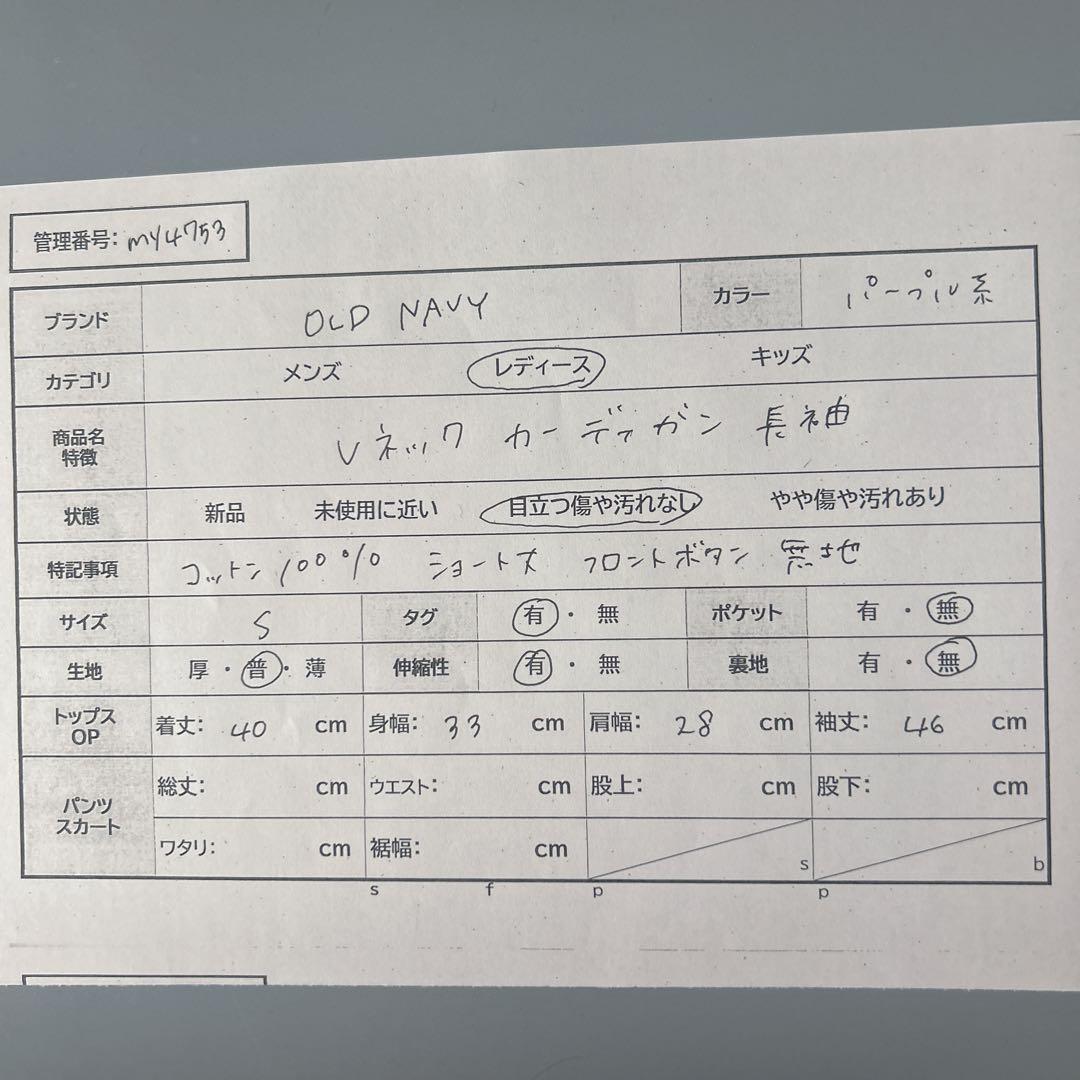 管理番号: my4753
ブランド OLD NAVY カラー パープル系
カテゴリ メンズ レディース キッズ
商品名
特徴 Vネック カーディガン 長袖
状態 新品 未使用に近い 目立つ傷や汚れなし やや傷や汚れあり
特記事項 コットン100% ショート丈 フロントボタン 無地
サイズ S タグ 有・無 ポケット 有・無
生地 厚・普・薄 伸縮性 有・無 裏地 有・無
トップス
OP 着丈: 40 cm 身幅: 33 cm 肩幅: 28 cm 袖丈: 46 cm
パンツ
スカート 総丈: cm ウエスト: cm 股上: cm 股下: cm
ワタリ: cm 裾幅: cm s b
s f p p